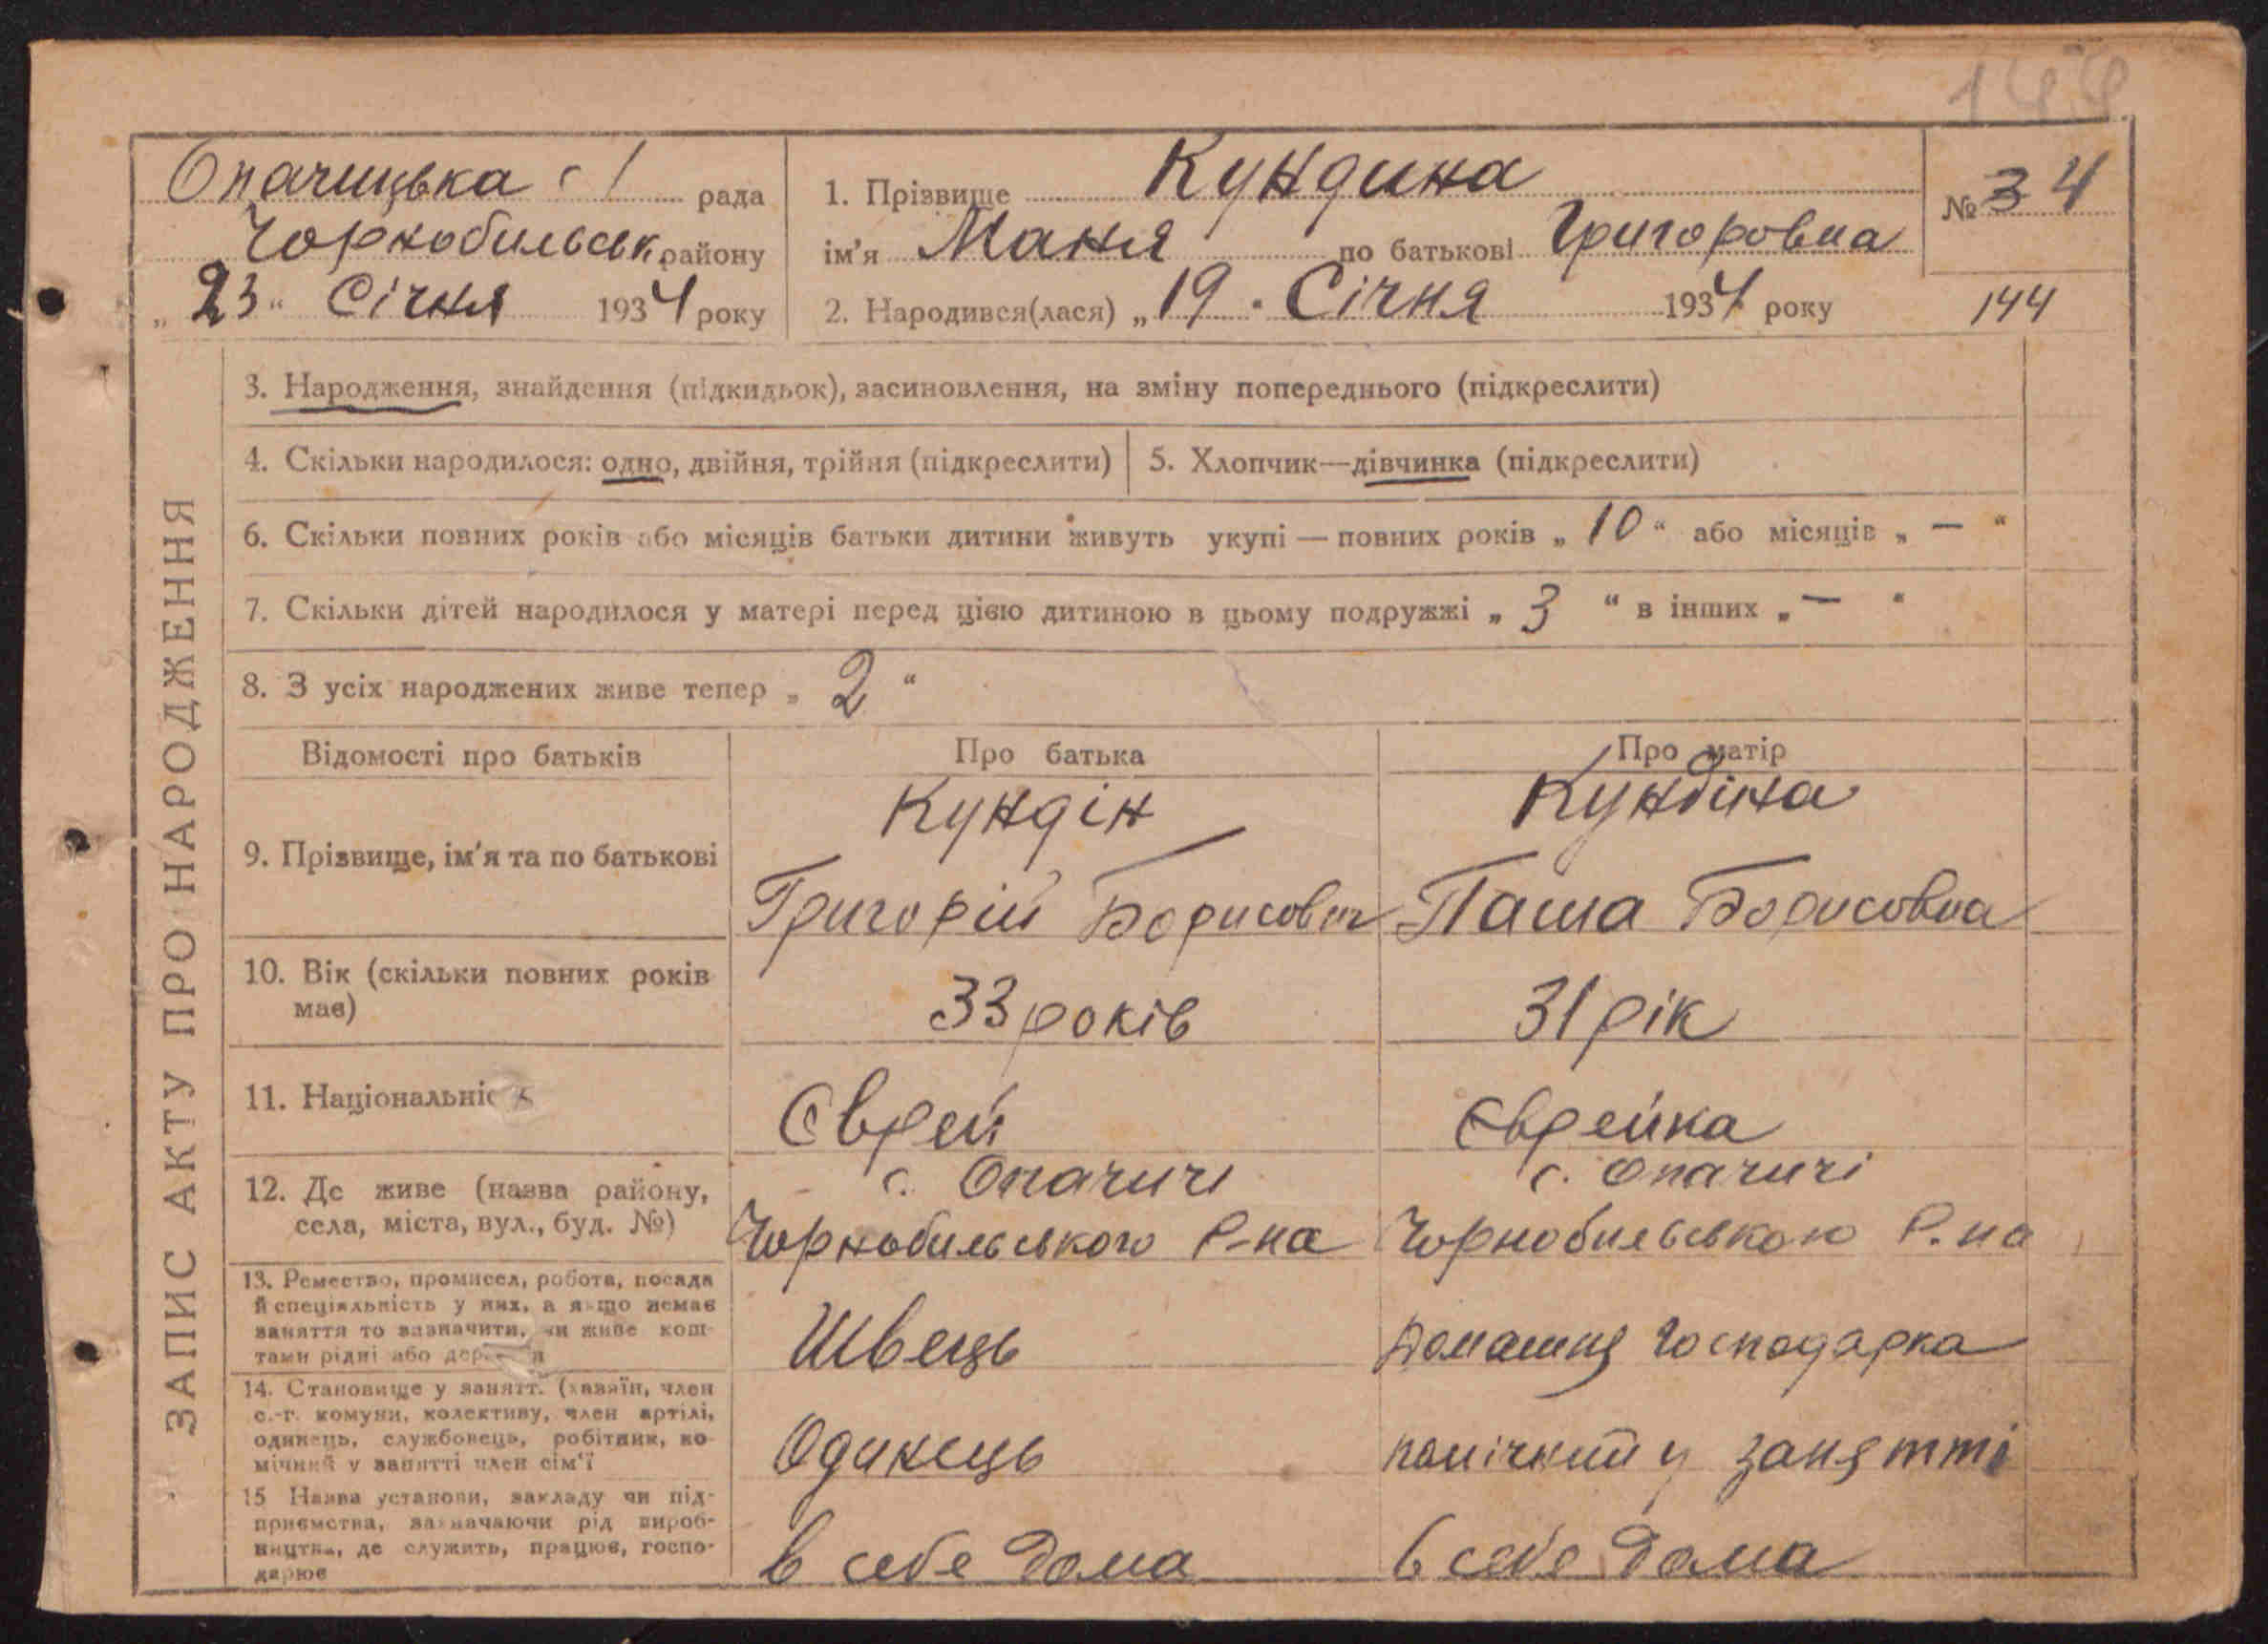 144
Опачицька с/ рада
Чорнобильськ району
„23“ Січня 1934 року
1. Прізвище Кундина
ім'я Маня по батькові Григоровна
2. Народився(лася) „19“ Січня 1934 року
№ 34
144
ЗАПИС АКТУ ПРО НАРОДЖЕННЯ
3. Народження, знайдення (підкидьок), засиновлення, на зміну попереднього (підкреслити)
4. Скільки народилося: одно, двійня, трійня (підкреслити)
5. Хлопчик—дівчинка (підкреслити)
6. Скільки повних років або місяців батьки дитини живуть укупі — повних років „10“ або місяців „—“
7. Скільки дітей народилося у матері перед цією дитиною в цьому подружжі „3“ в інших „—“
8. З усіх народжених живе тепер „2“
Відомості про батьків
Про батька
Про матір
9. Прізвище, ім'я та по батькові
Кундін
Григорій Борисович
Кундіна
Паша Борисовна
10. Вік (скільки повних років
має)
33 років
31 рік
11. Національніс
Єврей
Єврейка
12. Де живе (назва району,
села, міста, вул., буд. №)
с. Опачичі
Чорнобильського Р-на
с. Опачичі
Чорнобильського Р-на
13. Ремество, промисел, робота, посада
й спеціяльність у них, а якщо немає
заняття то зазначити, чи живе кош-
тами рідні або дер
Швець
Домашня господарка
14. Становище у занятт. (хазяїн, член
с.-г. комуни, колективу, член артілі,
одинець, службовець, робітник, по-
мічний у занятті член сім'ї
Одинець
помічний у занятті
15 Назва установи, закладу чи під-
приємства, зазначаючи рід вироб-
ництва, де служить, працює, госпо-
дарює
в себе дома
в себе дома